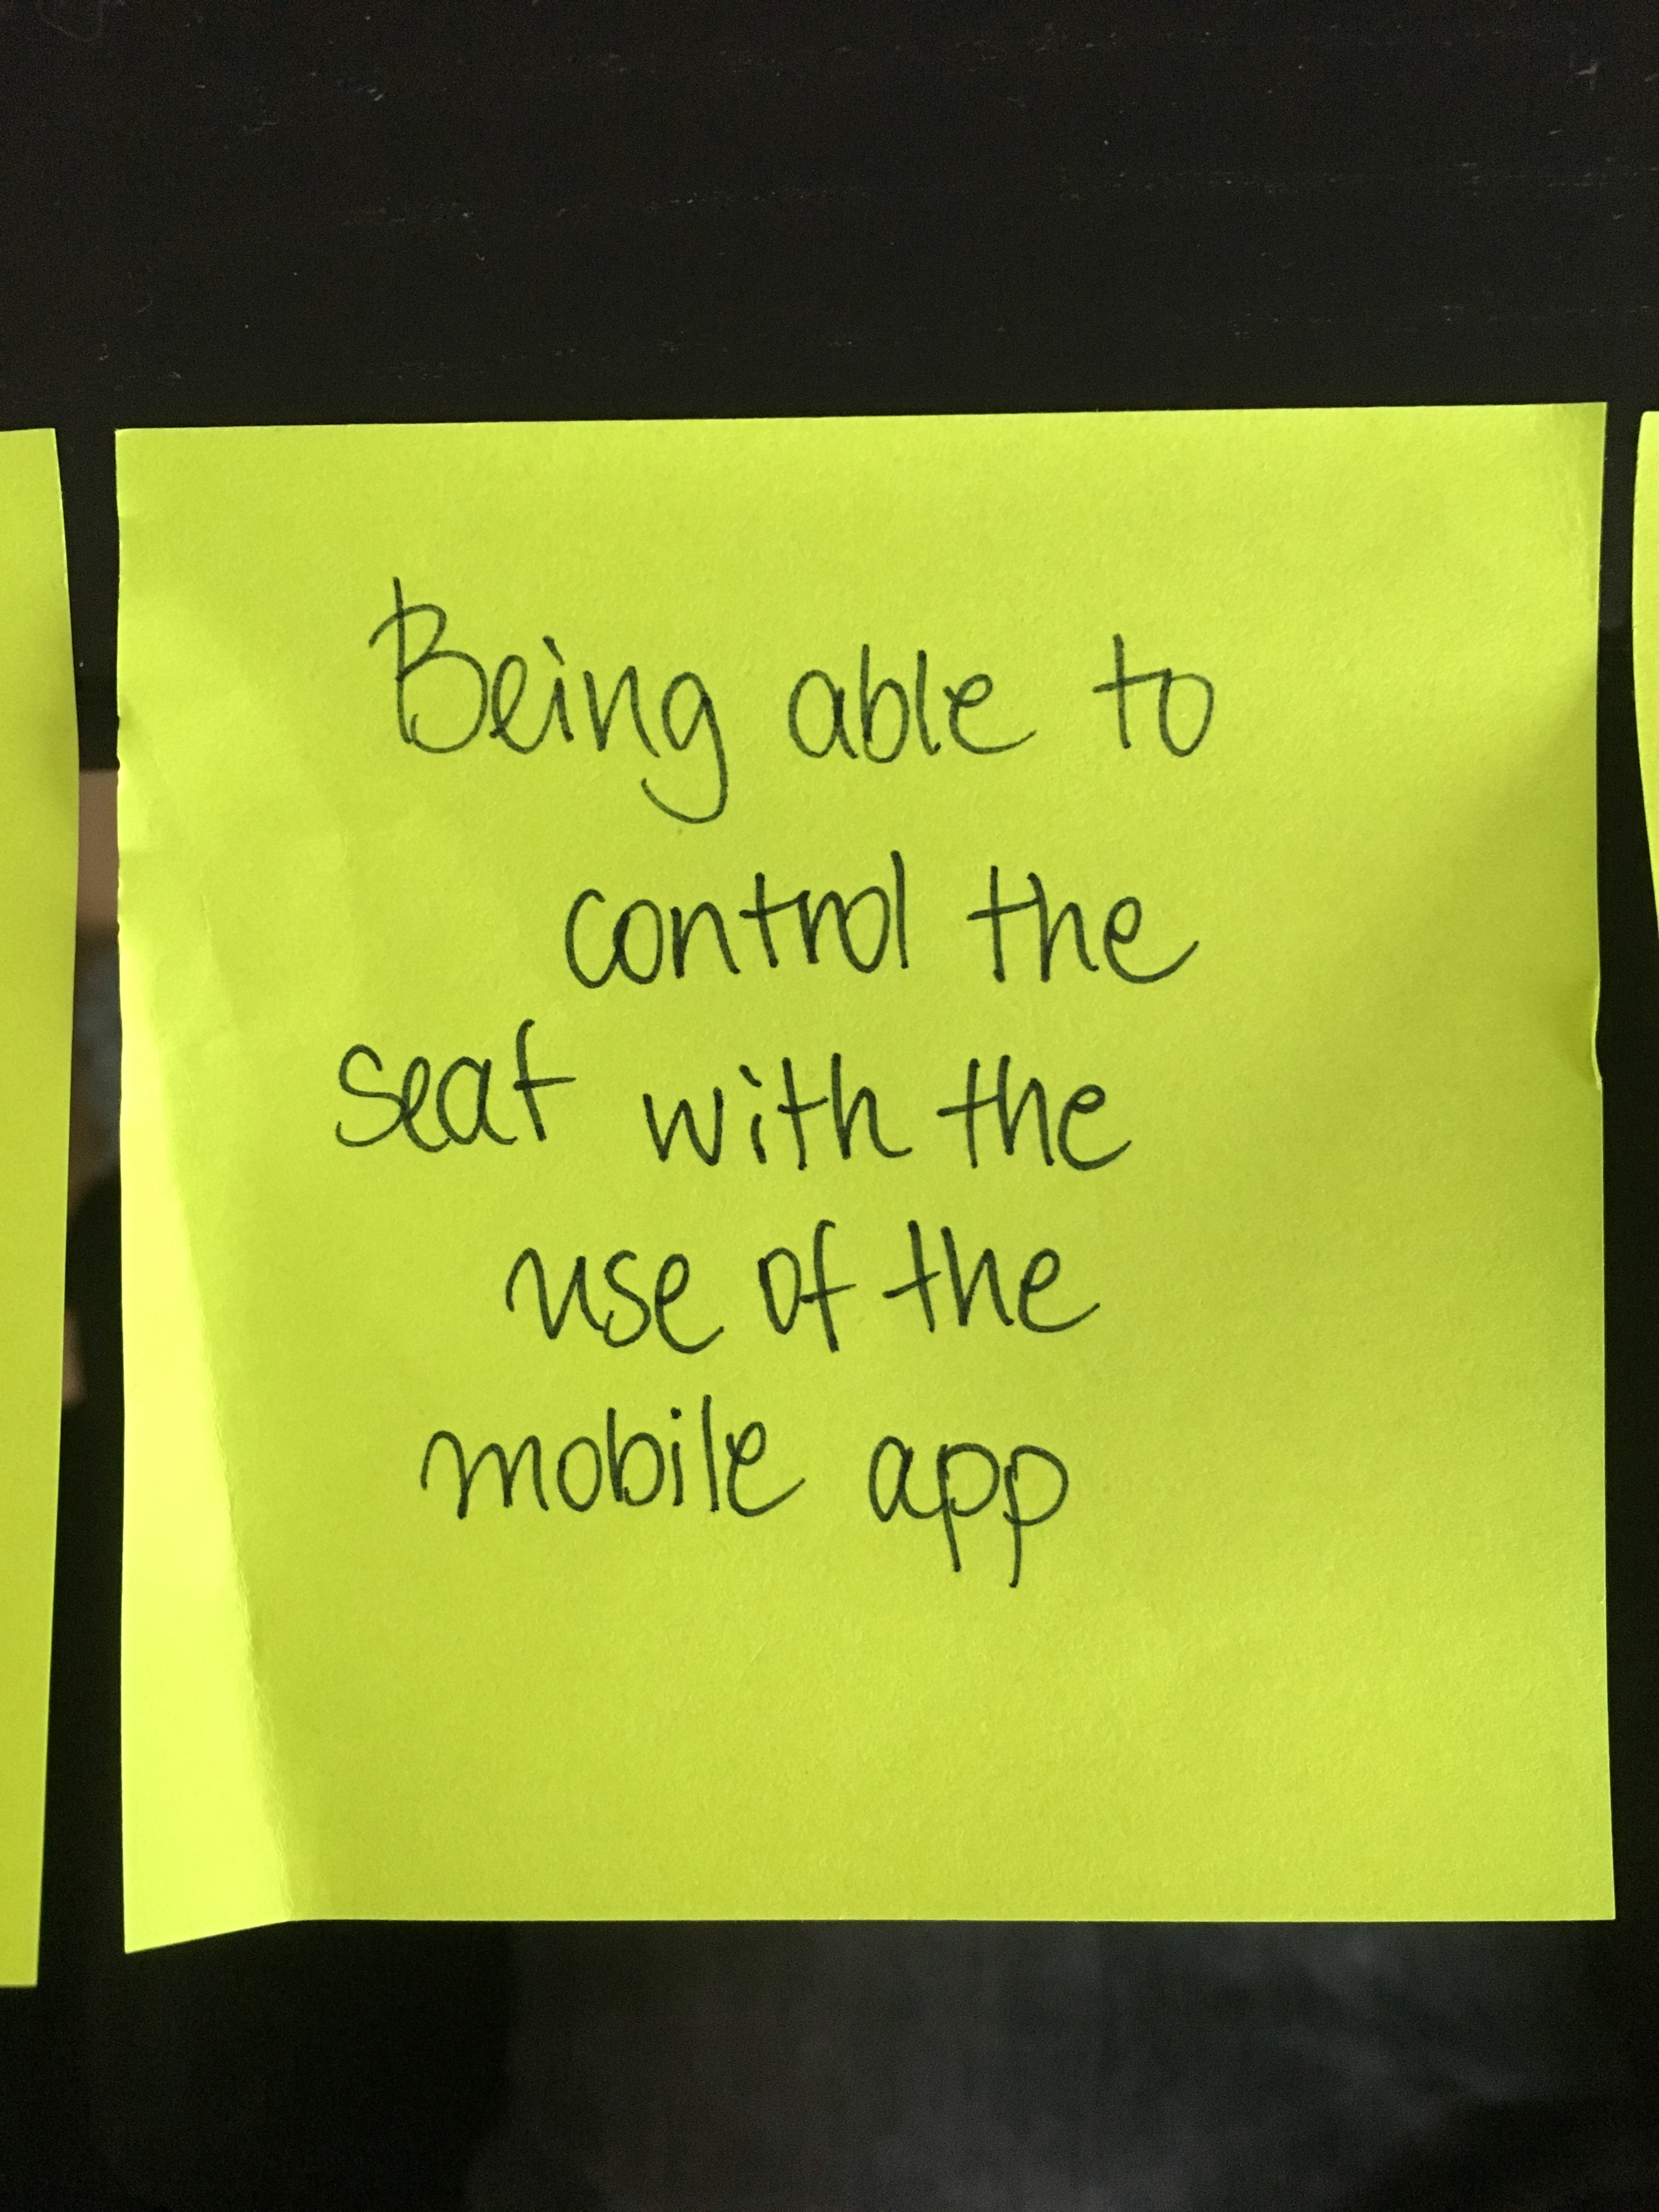 Being able to
control the
seat with the
use of the
mobile app